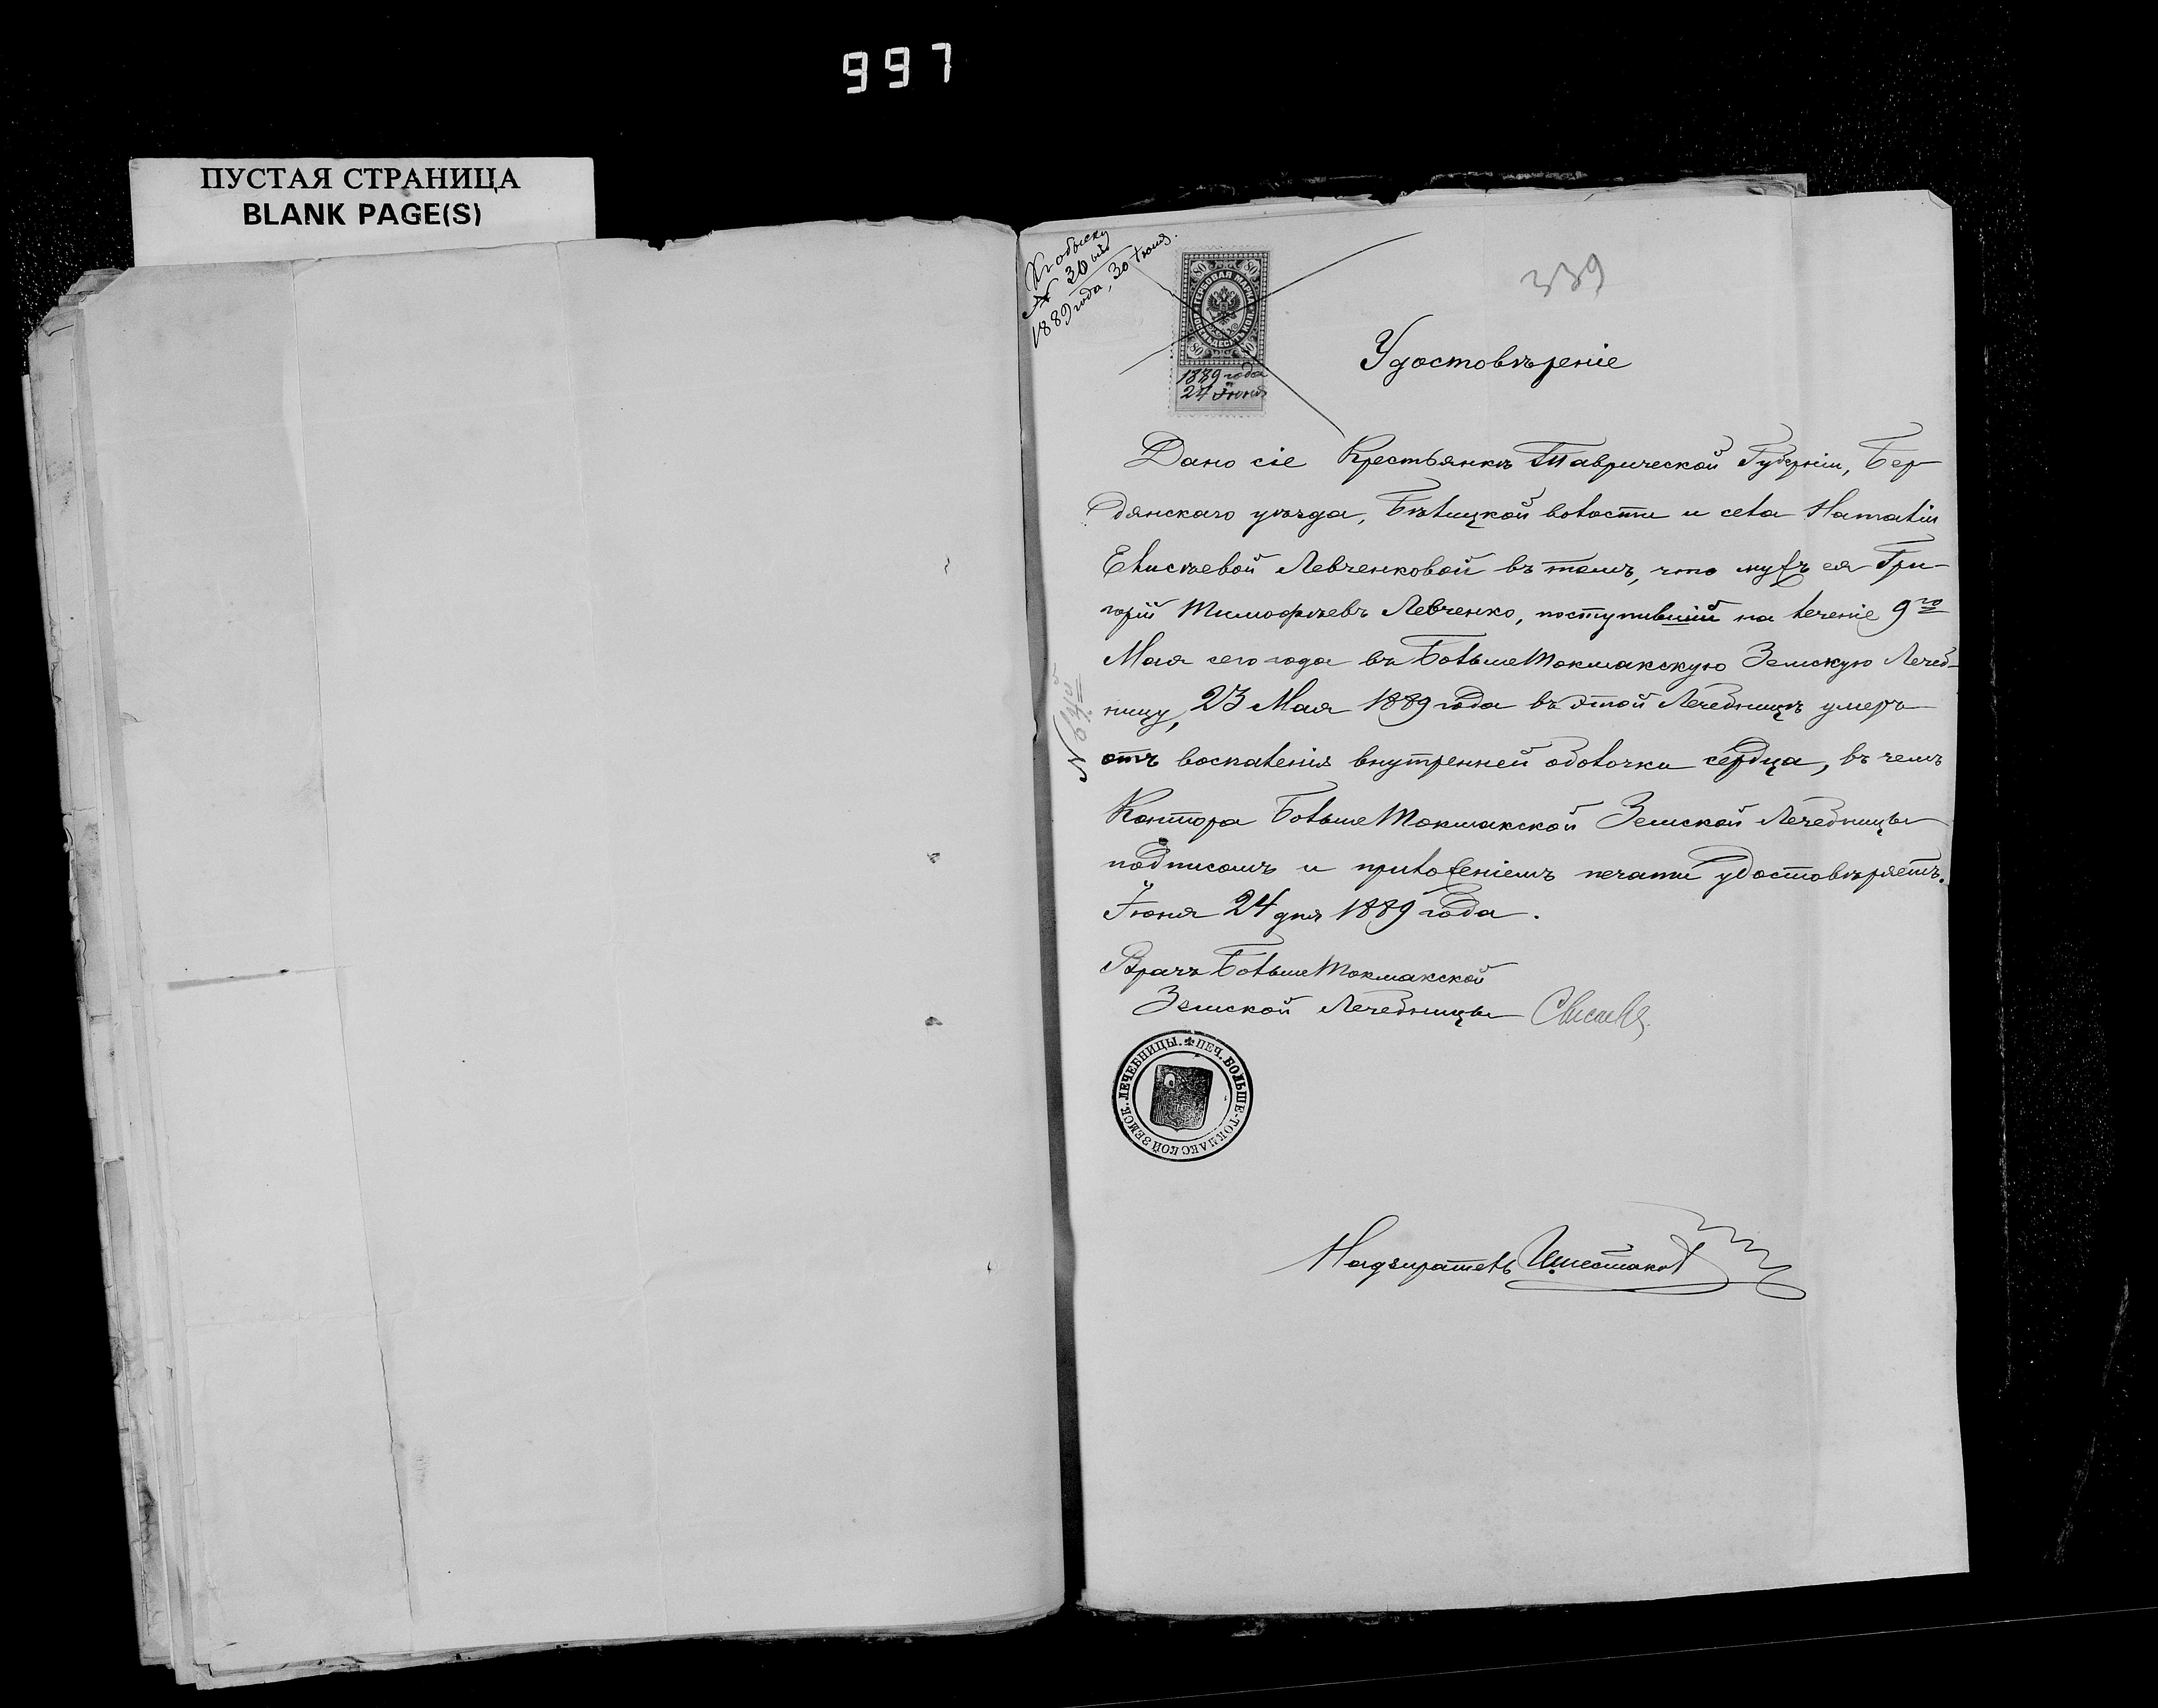 997
ПУСТАЯ СТРАНИЦА
BLANK PAGE(S)
Къ обыску
№ 30ый
1889 года, 30 Іюня.
80 80
ГЕРБОВАЯ МАРКА ВОСЕМЬДЕСЯТЪ КОП.
80 80
1889 года
24 Іюня
339
Удостовѣреніе
Дано сіе Крестьянкѣ Таврической Губерніи, Бер-
дянскаго уѣзда, Бѣлицкой волости и села Наталіи
Елисѣевой Левченковой въ томъ, что мужъ ея Гри-
горій Тимофѣевъ Левченко, поступившій на леченіе 9го
Мая сего года въ БольшеТокмакскую Земскую Лечеб-
ницу, 23 Мая 1889 года въ этой Лечебницѣ умеръ
отъ воспаленія внутренней оболочки сердца, въ чемъ
Контора БольшеТокмакской Земской Лечебницы
подписомъ и приложеніемъ печати удостовѣряетъ.
Іюня 24 дня 1889 года.
№
Врачъ БольшеТокмакской
Земской Лечебницы
ПЕЧ. БОЛЬШЕ-ТОКМАКСКОЙ ЗЕМСК. ЛЕЧЕБНИЦЫ.
Надзиратель Шестаков